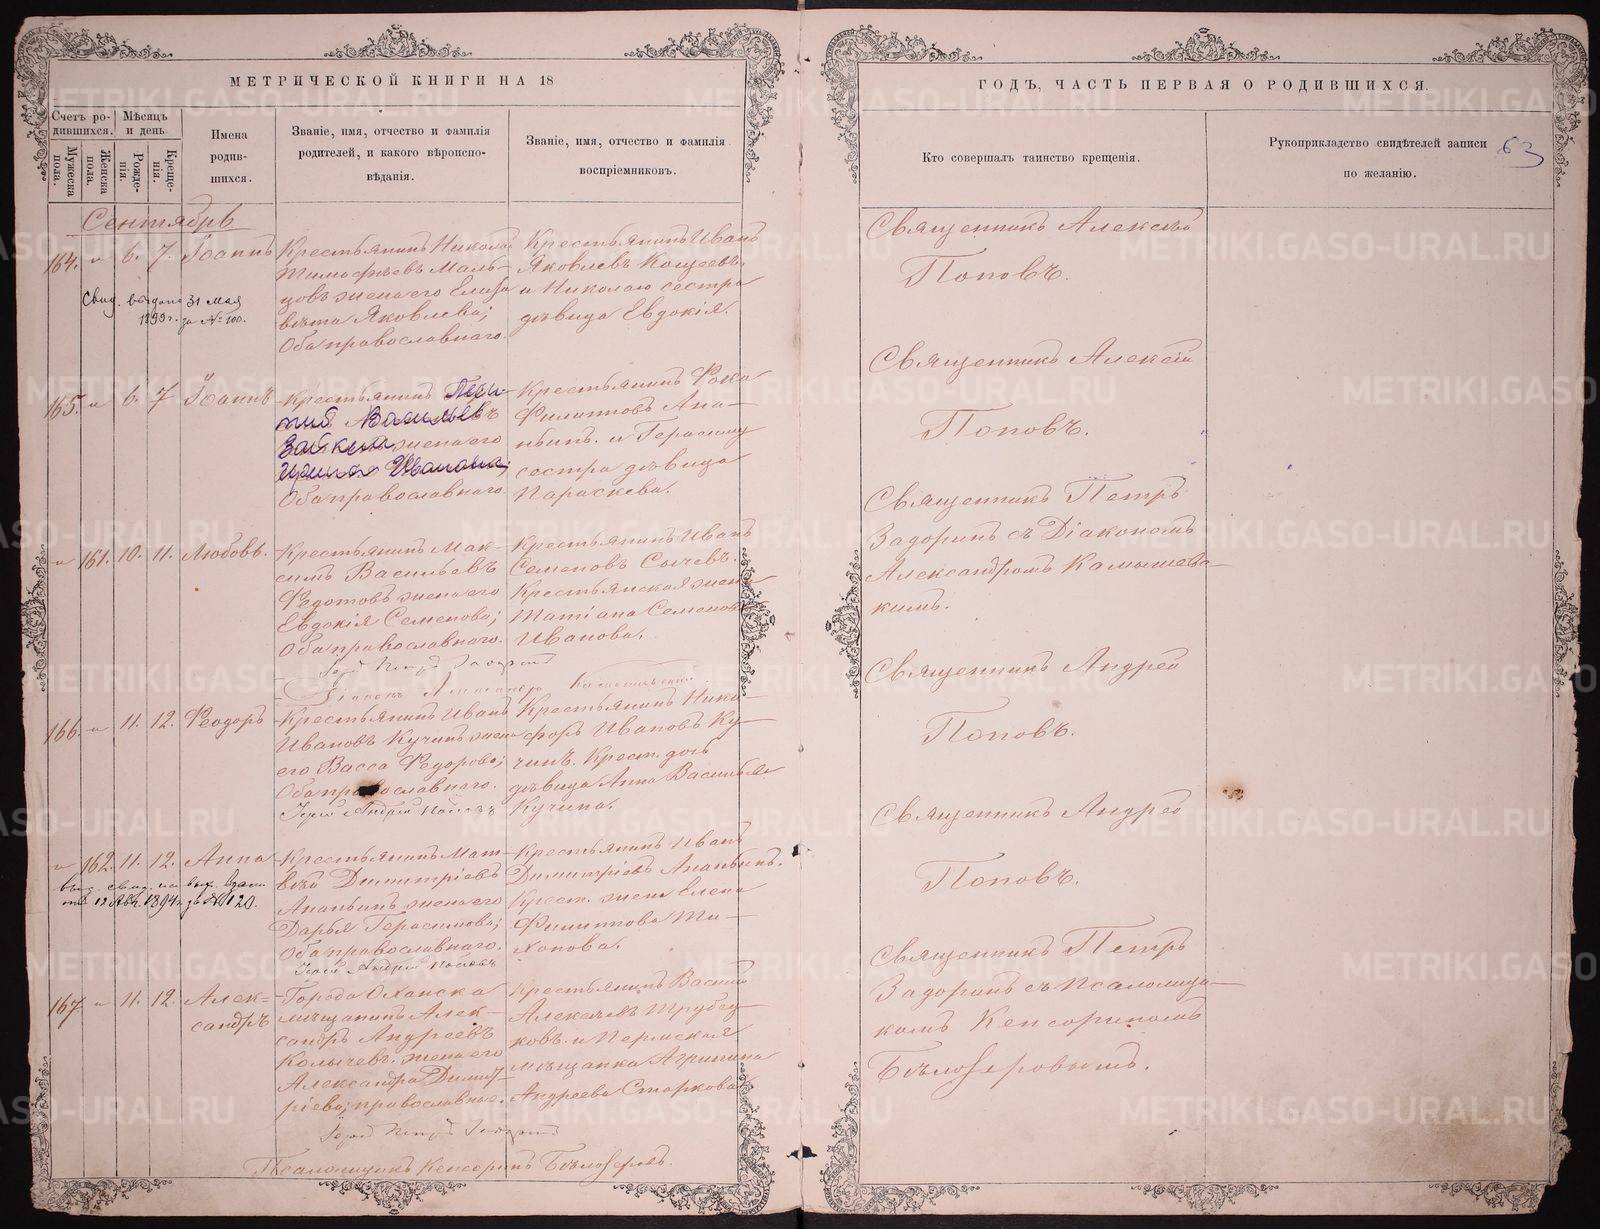 МЕТРИЧЕСКОЙ КНИГИ НА 18
Счетъ ро-
дившихся.
Мужеска
пола.
Женска
пола.
Мѣсяцъ
и день.
Рожде-
нія.
Креще-
нія.
Имена
родив-
шихся.
Званіе, имя, отчество и фамилія
родителей, и какого вѣроиспо-
вѣданія.
Званіе, имя, отчество и фамилія
воспріемниковъ.
Сентябрь
164. " 6. 7. Іоаннъ
Свид. выдано 31 мая
1899 г. за № 100.
Крестьянинъ Николай
Тимофѣевъ Маль-
цовъ жена его Елиза
вѣта Яковлева;
Оба православнаго.
Крестьянинъ Иванъ
Яковлевъ Кощеевъ.
и Николаю сестра
дѣвица Евдокія.
165. " 6. 7 Іоаннъ
Крестьянинъ
Васильевъ
жена его
Ивановна;
Оба православнаго
Крестьянинъ Фока
Филипповъ Ана-
ньинъ. и Герасиму
сестра дѣвица
Параскева.
" 161. 10. 11. Любовь.
Крестьянинъ Мак-
симъ Васильевъ
Федотовъ жена его
Евдокія Семенова;
Оба православнаго.
Крестьянинъ Иванъ
Семеновъ Сычевъ.
Крестьянская жена
Татіана Семенова
Иванова.
Іерей Петръ Задоринъ
Діаконъ Александръ
166. " 11. 12. Феодоръ
Крестьянинъ Иванъ
Ивановъ Кучинъ жена
его Васса Федорова;
Оба православнаго.
Іерей Андрей Поповъ
Крестьянинъ Ники-
форъ Ивановъ Ку-
чинъ. Крест. дочь
дѣвица Анна Васильева
Кучина.
" 162. 11. 12. Анна
1894 г. за № 120.
Крестьянинъ Мат-
вѣй Димитріевъ
Ананьинъ жена его
Дарья Герасимова;
Оба православнаго.
Іерей Андрей Поповъ
Крестьянинъ Иванъ
Димитріевъ Ананьинъ.
Крест. жена Елена
Филиппова Ти-
хонова.
167 " 11. 12. Алек-
сандръ
Города Оханска
мѣщанинъ Алек-
сандръ Андреевъ
Колычевъ. жена его
Александра Димит-
ріева; православнаг.
Крестьянинъ Василій
Алексѣевъ Трубец-
ковъ. и Пермская
мѣщанка Агрипина
Андреева Старкова
Іерей Петръ Задоринъ
Псаломщикъ Кенсоринъ Бѣлозеровъ.
ГОДЪ, ЧАСТЬ ПЕРВАЯ О РОДИВШИХСЯ.
Кто совершалъ таинство крещенія.
Рукоприкладство свидѣтелей записи
по желанію.
63
Священникъ Алексѣй
Поповъ.
Священникъ Алексій
Поповъ.
Священникъ Петръ
Задоринъ съ Діакономъ
Александромъ Камышева-
кимъ.
Священникъ Андрей
Поповъ.
Священникъ Андрей
Поповъ.
Священникъ Петръ
Задоринъ съ Псаломщи-
комъ Кенсориномъ
Бѣлозеровымъ.
METRIKI.GASO-URAL.RU